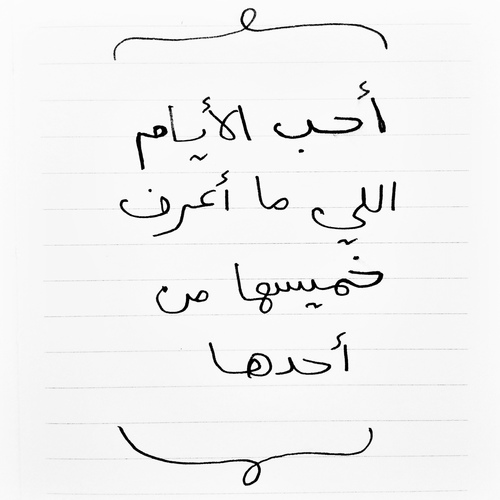 أحب الأيام
اللي ما أعرف
خميسها من
أحدها